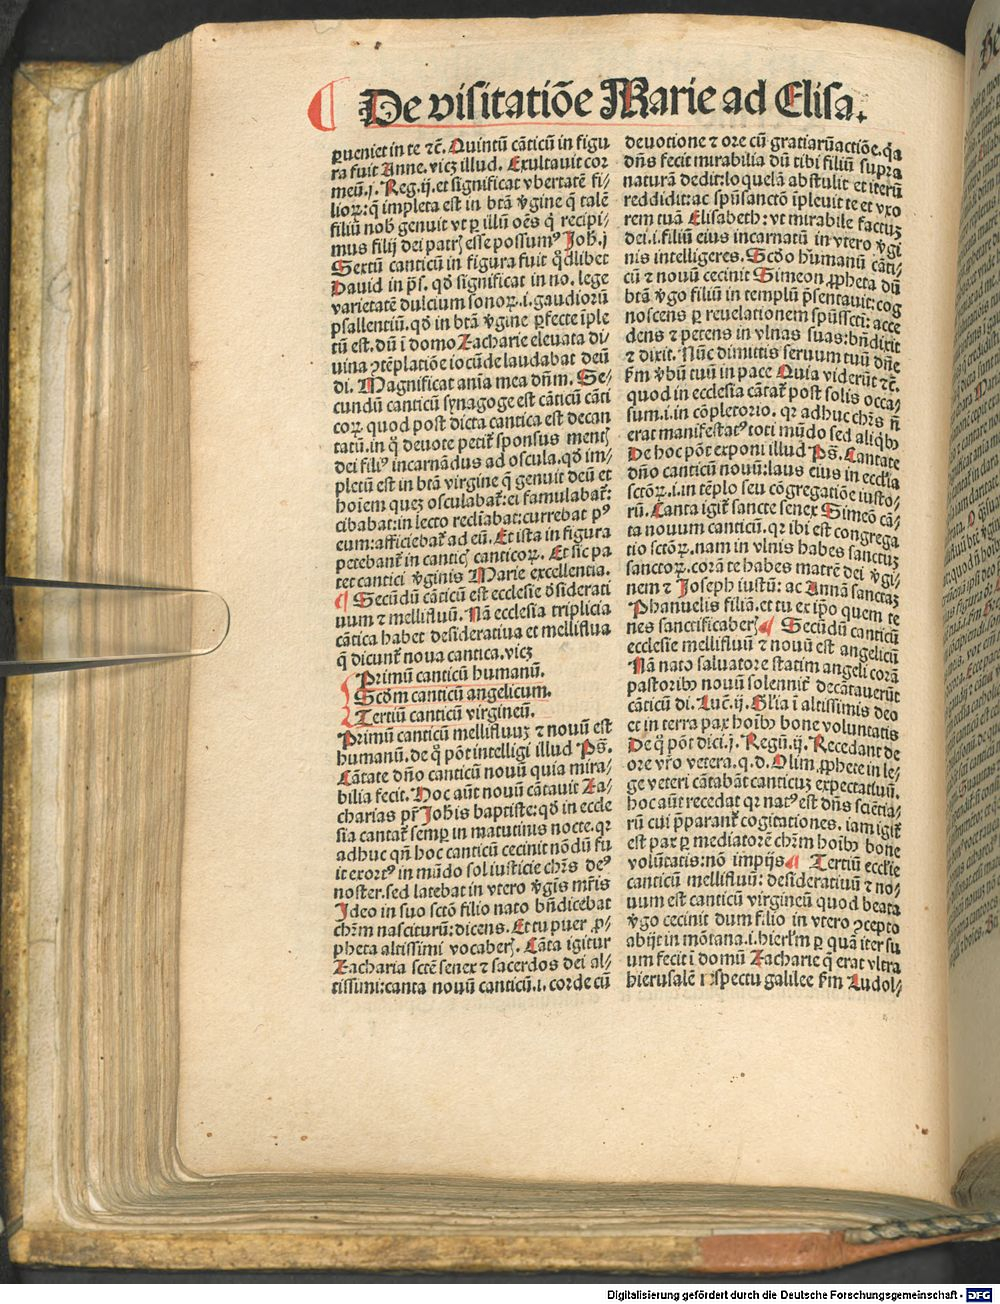 De visitatiõe Marie ad Elisa.
ꝑueniet in te ⁊c̃. Quintũ cãticũ in figu
ra fuit Anne. vicꝫ illud. Exultauit cor
meũ. j. Reg. ij. et significat vbertatẽ fi⸗
lioꝝ: q̃ impleta est in btã ꝟgine q̃ talẽ
filiũ nob̃ genuit vt ꝑ illũ oẽs q̃ recipi⸗
mus filij dei patrꝭ esse possumꝰ Joh̃. j
Sextũ canticũ in figura fuit qd̃libet
Dauid in p̃s. qd̃ significat in no. lege
varietatẽ dulcium sonoꝝ .i. gaudiorũ
psallentiũ. qd̃ in btã ꝟgine ꝑfecte ĩple
tũ est. dũ ĩ domo Zacharie eleuata di⸗
uina ꝯtẽplatiõe iocũde laudabat deũ
di. Magnificat anĩa mea dñm. Se⸗
cundũ canticũ synagoge est cãticũ cãti
coꝝ. quod post dicta cantica est decan
tatũ. in q̃ deuote petit̃ sponsus mentꝭ
dei filiꝰ incarnãdus ad oscula. qd̃ im⸗
pletũ est in btã virgine q̃ genuit deũ et
hoĩem queꝫ osculabat̃: ei famulabat̃:
cibabat: in lecto recliabat: currebat pꝰ
eum: afficiebat̃ ad eũ. Et ista in figura
petebant̃ in canticꝭ canticoꝝ. Et sic pa
tet cantici ꝟginis Marie excellentia.
¶ Secũdũ cãticũ est ecclesie d̃siderati
uum ⁊ mellifluũ. Nã ecclesia triplicia
cãtica habet desideratiua et melliflua
q̃ dicunt̃ noua cantica. vicꝫ
Primũ canticũ humanũ.
Scd̃m canticũ angelicum.
Tertiũ canticũ virgineũ.
Primũ canticũ mellifluuꝫ ⁊ nouũ est
humanũ. de q̃ põt intelligi illud Ps̃.
Cãtate dño canticũ nouũ quia mira⸗
bilia fecit. Hoc aũt nouũ cãtauit Za⸗
charias pr̃ Joh̃is baptiste: qd̃ in eccle
sia cantat̃ semꝑ in matutinis nocte. qꝛ
adhuc qñ hoc canticũ cecinit nõdũ fu
it exortꝰ in mũdo sol iusticie chr̃s deꝰ
noster. sed latebat in vtero ꝟgis mr̃is
Ideo in suo sctõ filio nato bñdicebat
chr̃m nasciturũ: dicens. Et tu puer ꝓ⸗
pheta altissimi vocaberꝭ. Cãta igitur
Zacharia sctẽ senex ⁊ sacerdos dei al⸗
tissimi: canta nouũ canticũ .i. corde cũ
deuotione ⁊ ore cũ gratiarũactiõe. q̃a
dñs fecit mirabilia dũ tibi filiũ supra
naturã dedit: loquelã abstulit et iterũ
reddidit: ac spũsanctõ ĩpleuit te et vxo
rem tuã Elisabeth: vt mirabile factuꝫ
dei .i. filiũ eius incarnatũ in vtero ꝟgi
nis intelligeres. Scd̃o humanũ cãti⸗
cũ ⁊ nouũ cecinit Simeon ꝓpheta dũ
btã ꝟgo filiũ in templũ p̃sentauit: cog
noscens ꝑ reuelationem spũsscti: acce
dens ⁊ petens in vlnas suas: bñdixit
⁊ dixit. Nũc dimittis seruum tuũ dñe
ẜm ꝟbũ tuũ in pace Quia viderũt ⁊c̃.
quod in ecclesia cãtat̃ post solis occa⸗
sum .i. in cõpletorio. qꝛ adhuc chr̃s ñ
erat manifestatꝰ toti mũdo sed aliqbꝰ
De hoc põt exponi illud Ps̃. Cantate
dño canticũ nouũ: laus eius in ecclĩa
sctõꝝ .i. in tẽplo seu cõgregatiõe iusto⸗
rũ. Canta igit̃ sancte senex Simeõ cã⸗
ta nouum canticũ. qꝛ ibi est congrega
tio sctõꝝ. nam in vlnis habes sanctuꝫ
sanctoꝝ. corã te habes matrẽ dei ꝟgi⸗
nem ⁊ Joseph iustũ: ac Annã sanctaꝫ
Phanuelis filiã. et tu ex ip̃o quem te
nes sanctificaberꝭ ¶ Secũdũ canticũ
ecclesie mellifluũ ⁊ nouũ est angelicũ
Nã nato saluatore statim angeli corã
pastoribꝰ nouũ solennit̃ decãtauerũt
cãticũ di. Luc̃. ij. Gl̃ia ĩ altissimis deo
et in terra pax hoĩbꝰ bone voluntatis
De q̃ põt dici. j. Regũ. ij. Recedant de
ore vr̃o vetera. q. d. Olim ꝓphete in le⸗
ge veteri cãtabãt canticuꝫ expectatiuũ.
hoc aũt recedat qꝛ natꝰ est dñs sciẽtia⸗
rũ cui p̃parant̃ cogitationes. iam igit̃
est pax ꝑ mediatorẽ chr̃m hoĩbꝰ bone
volũtatis: nõ impijs ¶ Tertiũ ecclĩe
canticũ mellifluũ: desideratiuũ ⁊ no⸗
uum est canticũ virgineũ quod beata
ꝟgo cecinit dum filio in vtero ꝯcepto
abijt in mõtana .i. hierl̃m ꝑ quã iter su
um fecit ĩ domũ Zacharie q̃ erat vltra
hierusalẽ spectu galilee ẜm Ludol⸗
Digitalisierung gefördert durch die Deutsche Forschungsgemeinschaft - DFG